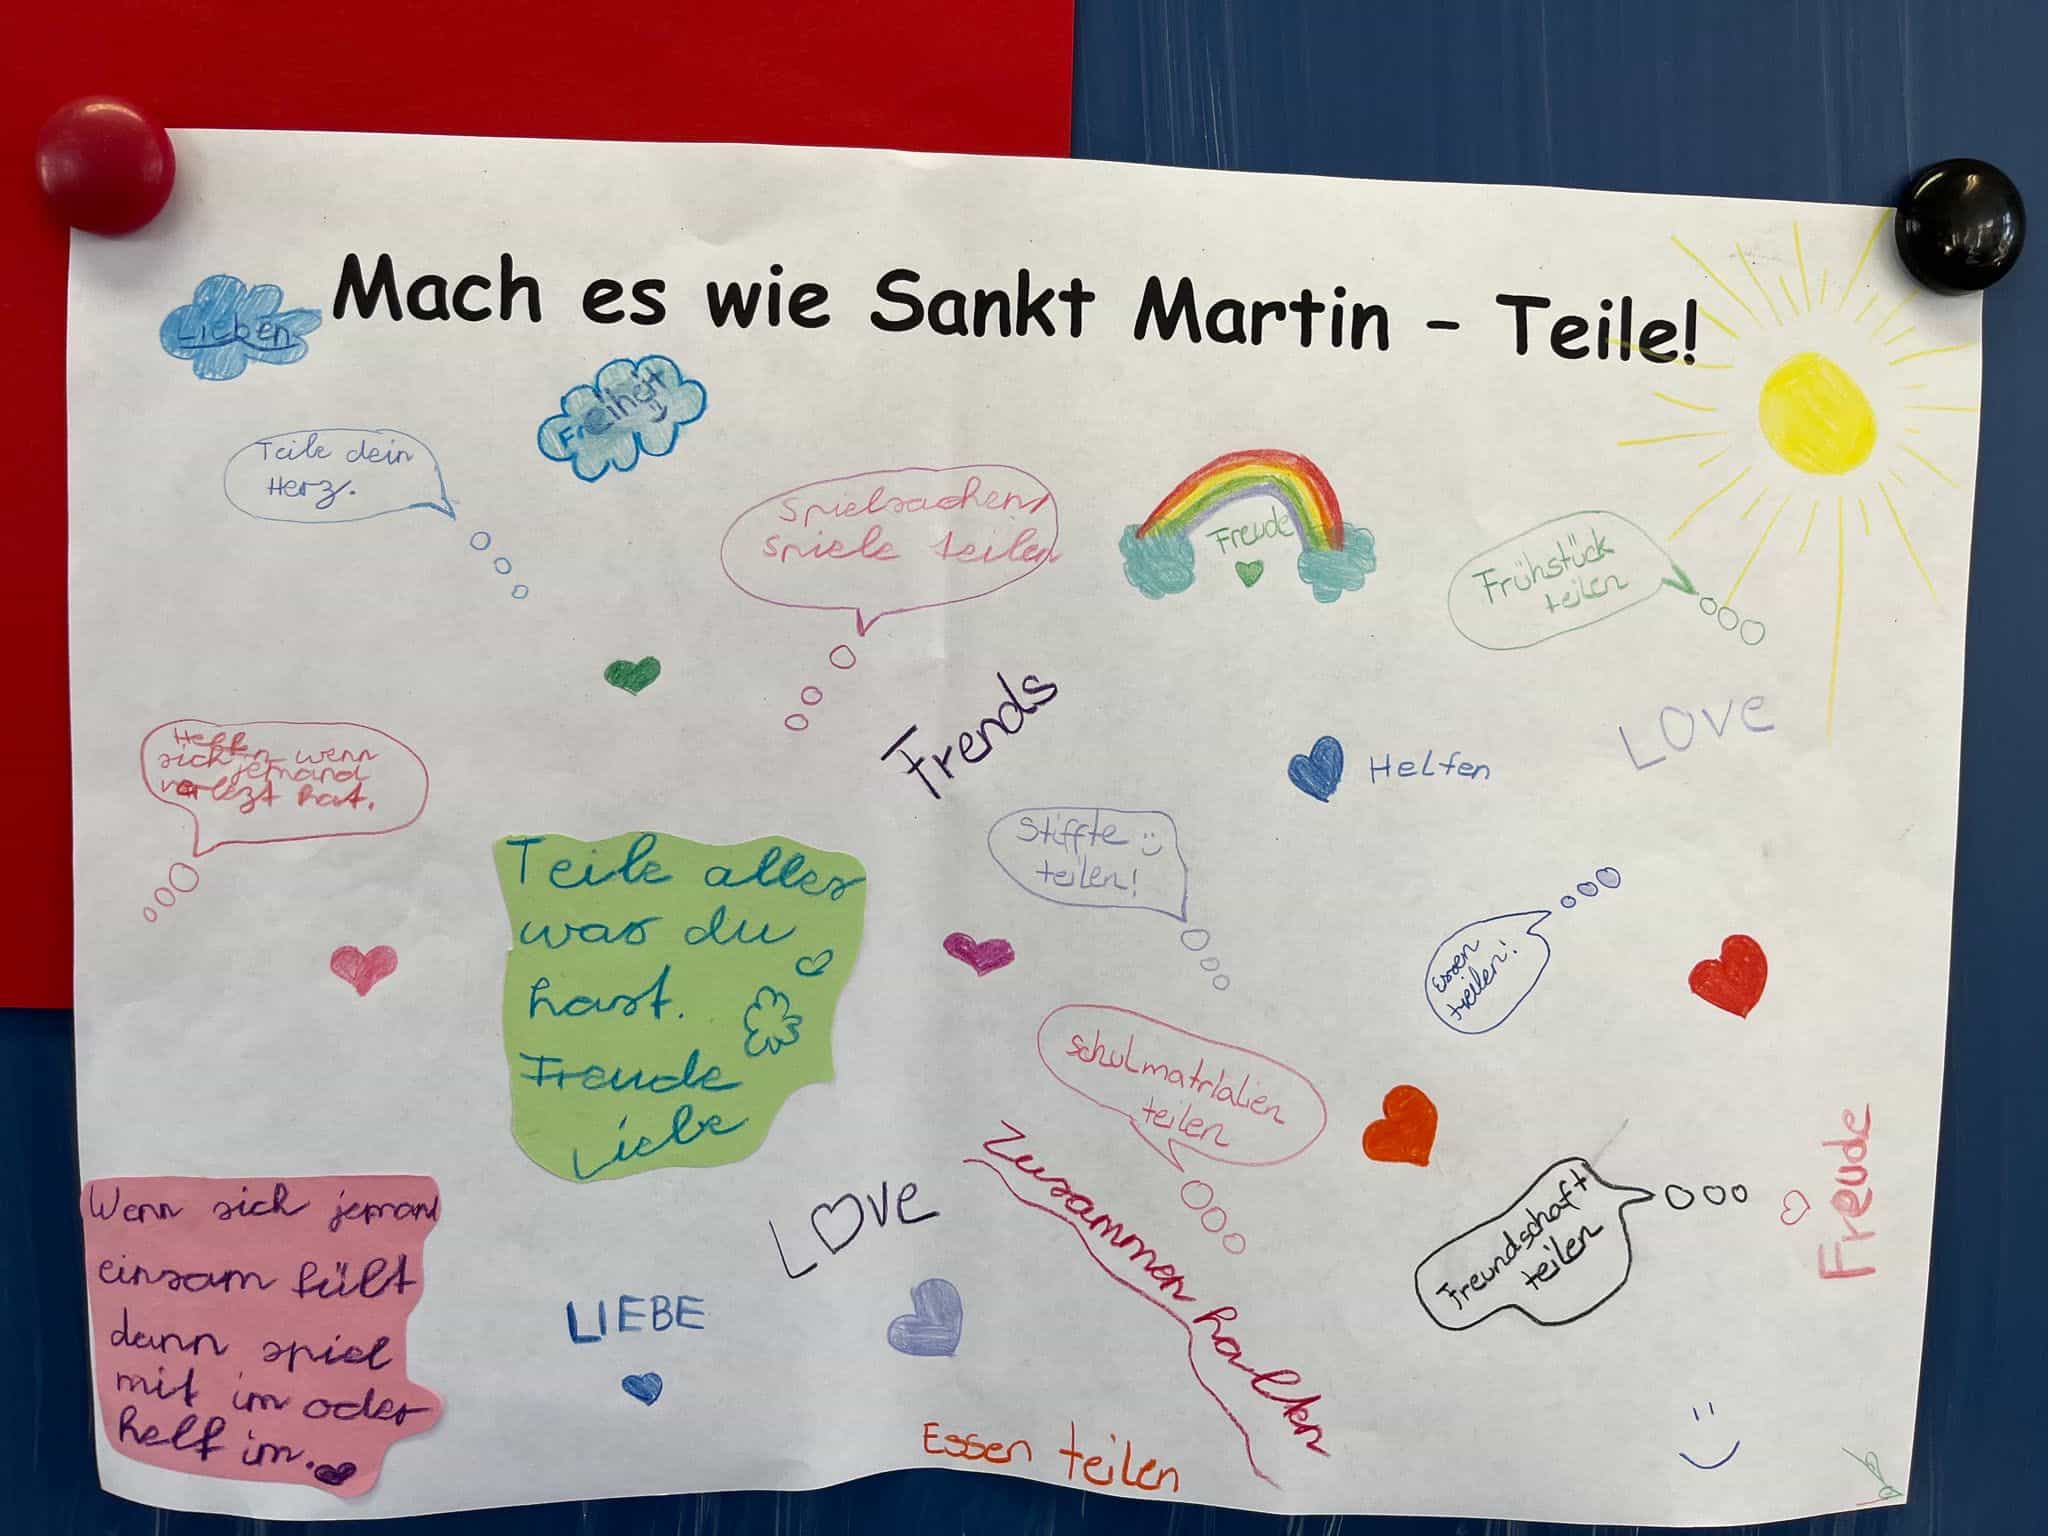 Mach es wie Sankt Martin - Teile!
Lieben
Freiheit
Teile dein
Herz.
Spielsachen
spiele teilen
Freude
Frühstück
teilen
Frends
LOVE
Helfen
Helfen wenn
sich jemand
verlezt hat.
Stiffte
teilen!
Teile alles
was du
hast.
Freude
Liebe
Essen
teilen!
schulmatrialien
teilen
Zusammen halten
Freundschaft
teilen
Freude
Wenn sich jemand
einsam fült
dann spiel
mit im oder
helf im.
LOVE
LIEBE
Essen teilen